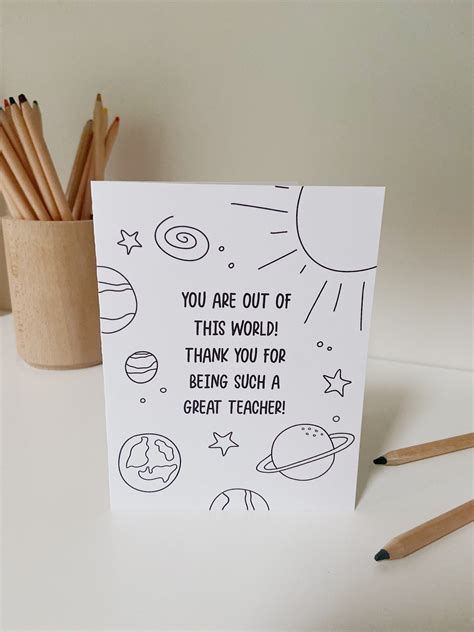 YOU ARE OUT OF
THIS WORLD!
THANK YOU FOR
BEING SUCH A
GREAT TEACHER!